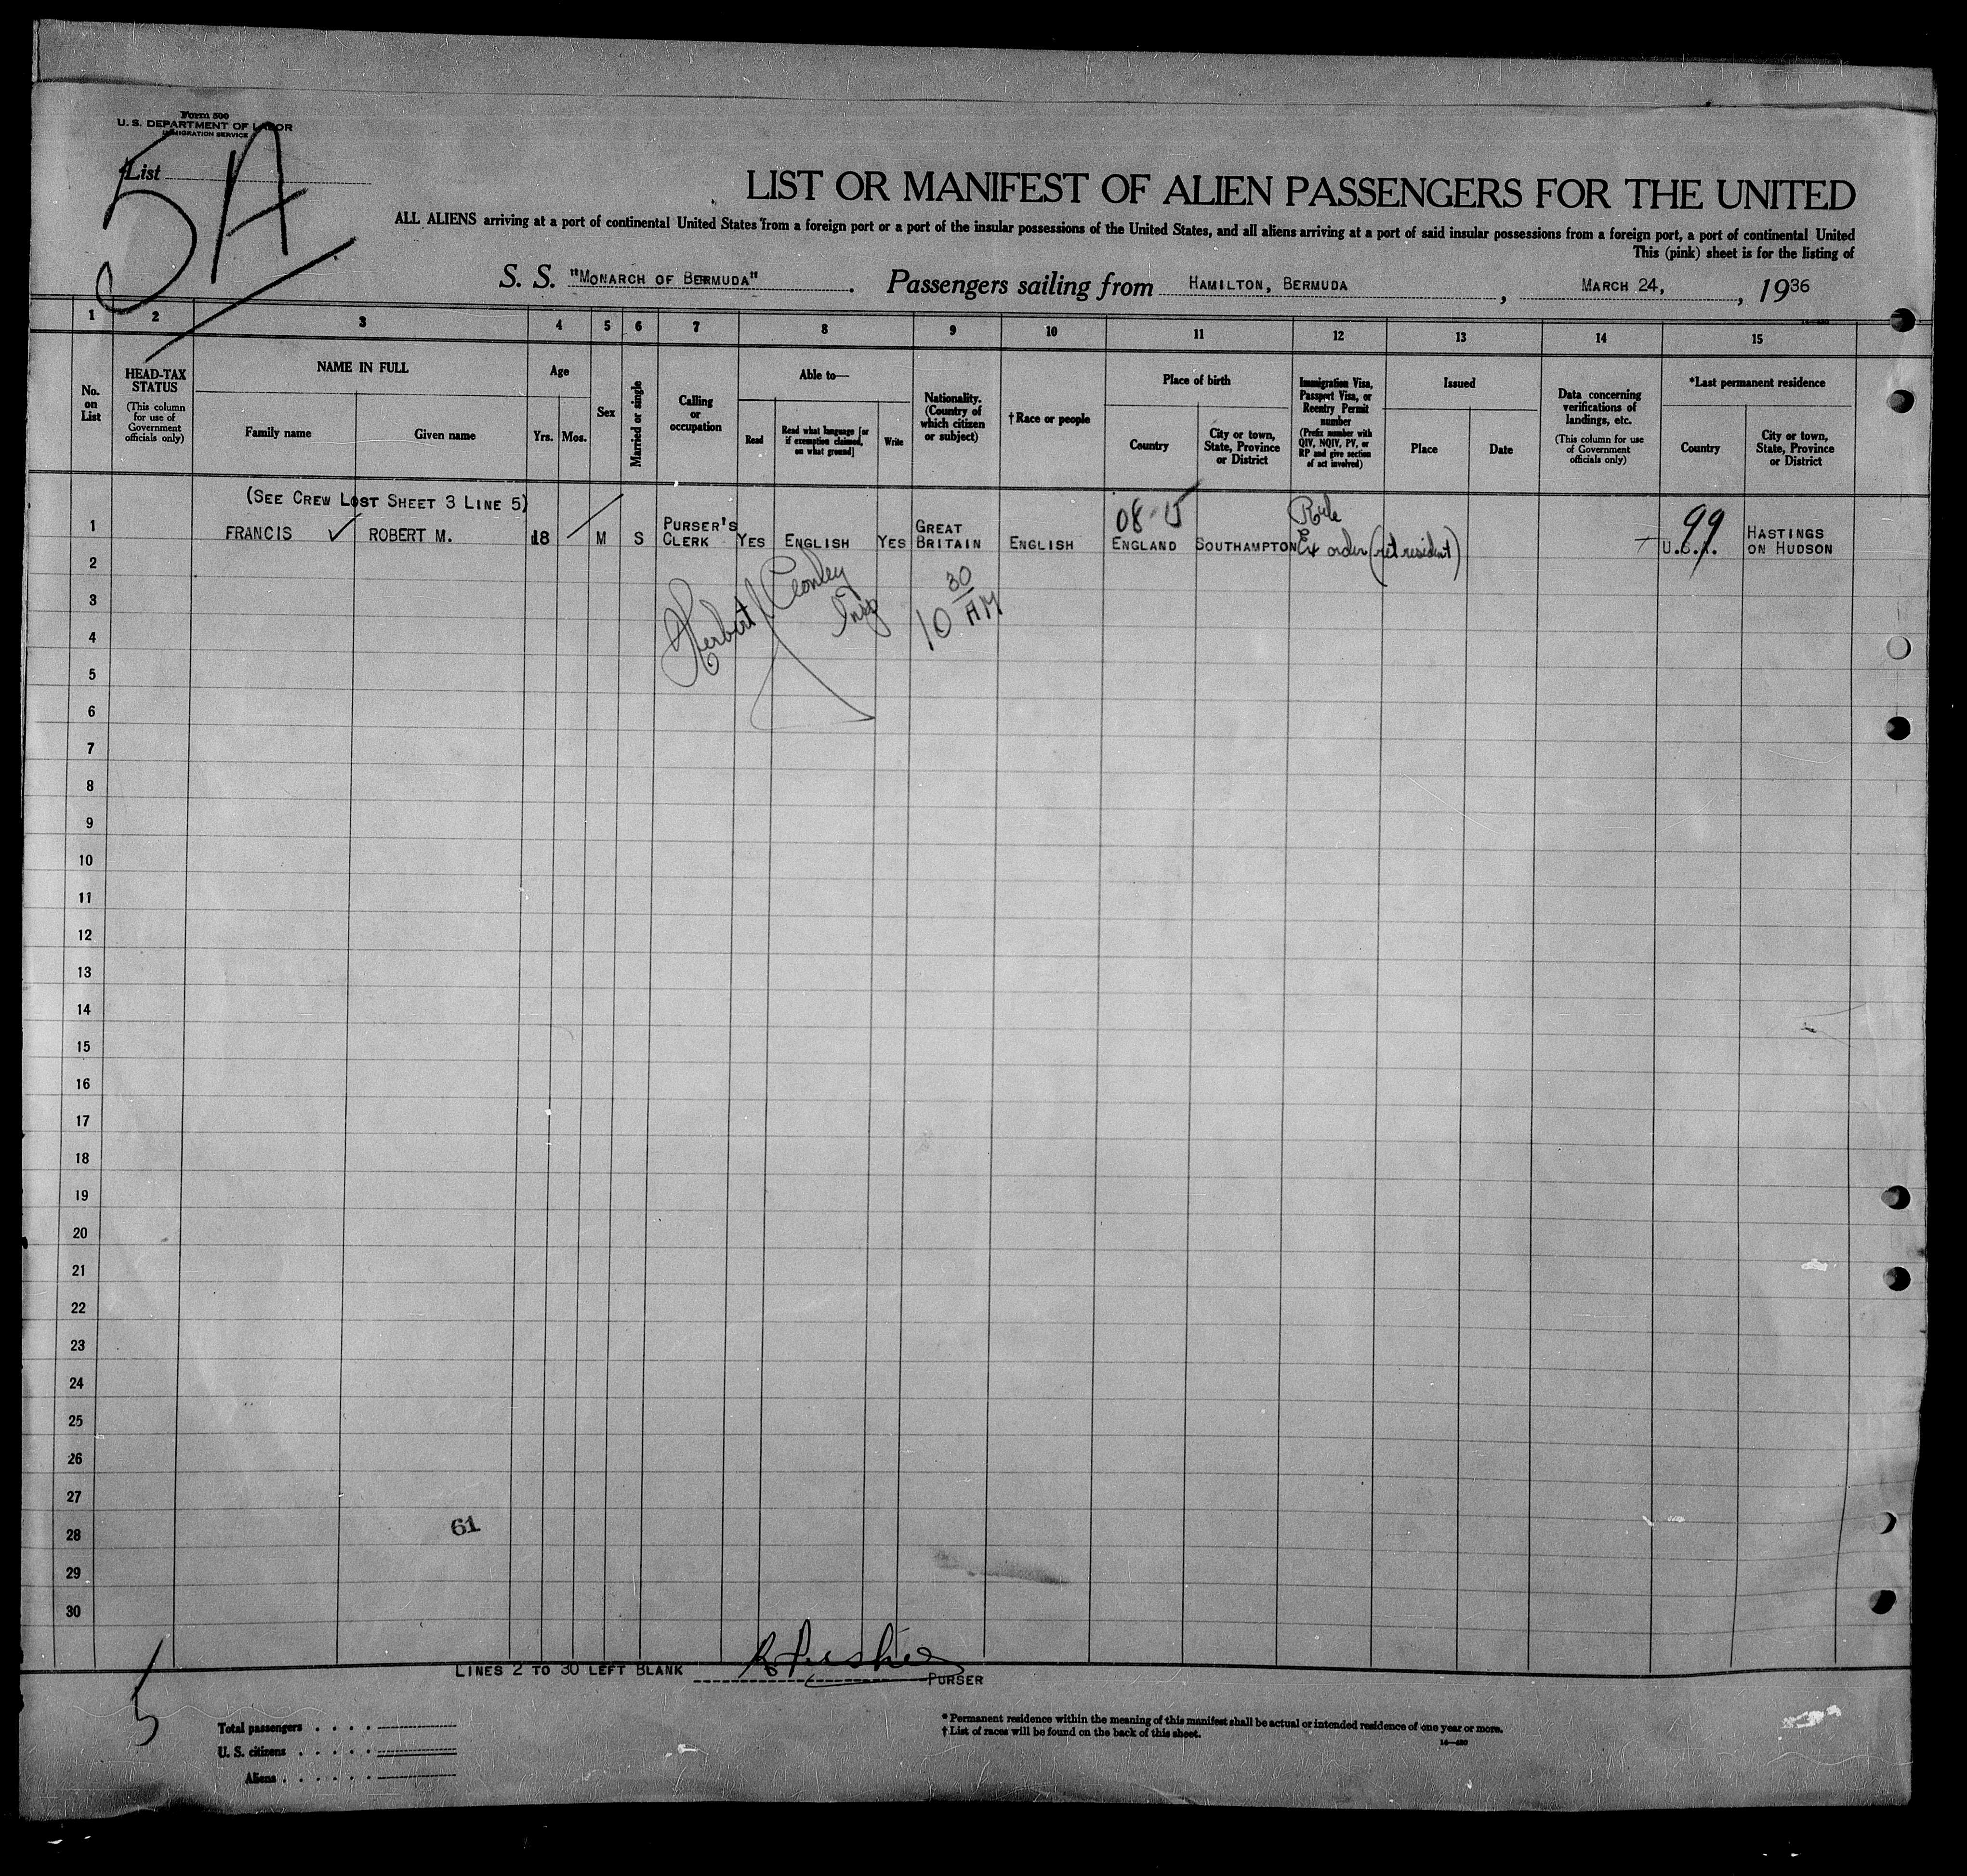 Form 500
U. S. DEPARTMENT OF LABOR
IMMIGRATION SERVICE
List
5A
LIST OR MANIFEST OF ALIEN PASSENGERS FOR THE UNITED
ALL ALIENS arriving at a port of continental United States from a foreign port or a port of the insular possessions of the United States, and all aliens arriving at a port of said insular possessions from a foreign port, a port of continental United
This (pink) sheet is for the listing of
S. S. "MONARCH OF BERMUDA". Passengers sailing from HAMILTON, BERMUDA, MARCH 24, , 1936
1 2 3 4 5 6 7 8 9 10 11 12 13 14 15
No. on List
HEAD-TAX STATUS
(This column for use of Government officials only)
NAME IN FULL
Family name
Given name
Age
Yrs.
Mos.
Sex
Married or single
Calling or occupation
Able to—
Read
Read what language [or if exemption claimed, on what ground]
Write
Nationality. (Country of which citizen or subject)
†Race or people
Place of birth
Country
City or town, State, Province or District
Immigration Visa, Passport Visa, or Reentry Permit number
(Prefix number with QIV, NQIV, PV, or RP and give section of act involved)
Issued
Place
Date
Data concerning verifications of landings, etc.
(This column for use of Government officials only)
*Last permanent residence
Country
City or town, State, Province or District
(SEE CREW LOST SHEET 3 LINE 5)
1 FRANCIS ✓ ROBERT M. 18 M S PURSER'S CLERK YES ENGLISH YES GREAT BRITAIN ENGLISH ENGLAND SOUTHAMPTON Ex order (ret resident) U.S.A. HASTINGS ON HUDSON
99
2
3
4
5
6
7
8
9
10
11
12
13
14
15
16
17
18
19
20
21
22
23
24
25
26
27
28
29
30
Herbert
Insp
10 30 AM
61
LINES 2 TO 30 LEFT BLANK
PURSER
5
Total passengers
U. S. citizens
Aliens
* Permanent residence within the meaning of this manifest shall be actual or intended residence of one year or more.
† List of races will be found on the back of this sheet.